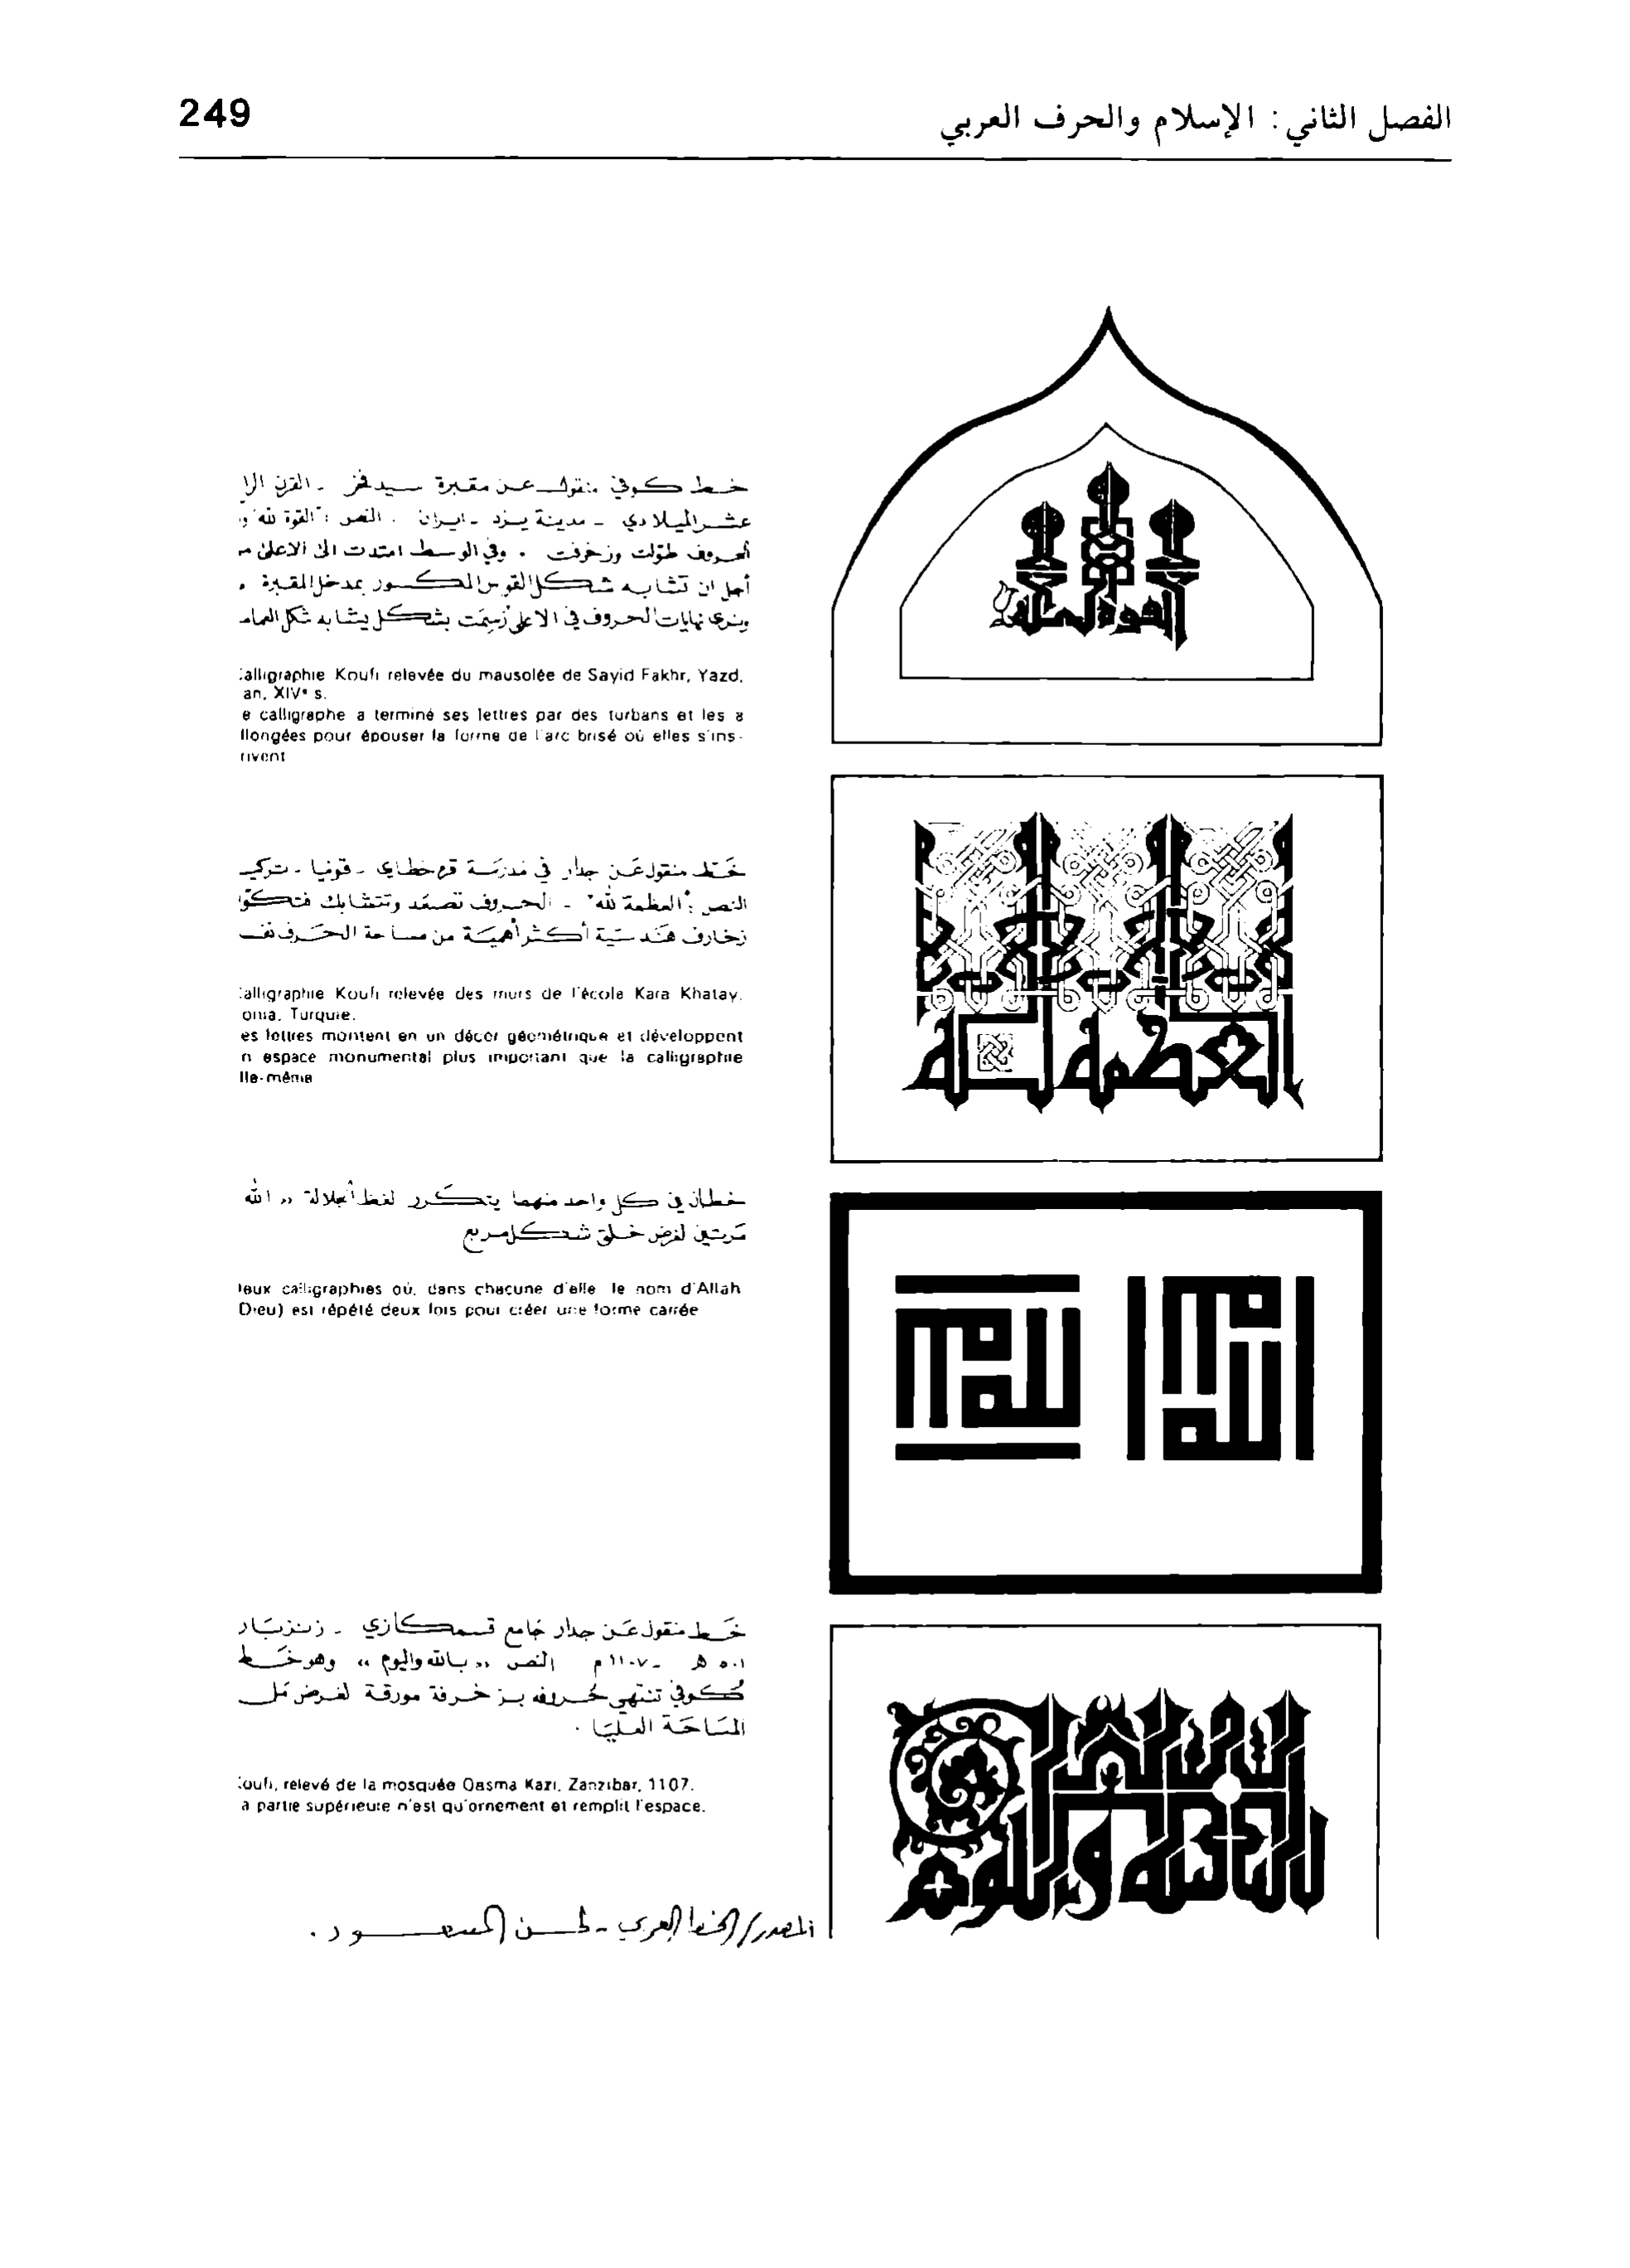 الفصل الثاني: الإسلام والحرف العربي
249
خط كوفي منقول عن مقبرة سيد فخر - القرن الرا
عشر الميلادي - مدينة يزد - ايران . النص : "القوة لله" و
الحروف طوّلت وزخرفت . وفي الوسط امتدت الى الاعلى م
أجل ان تشابه شكل القوس المكسور بمدخل المقبرة .
ونرى نهايات الحروف في الاعلى رُسِمَت بشكل يشابه شكل العمام
alligraphie Koufi relevée du mausolée de Sayid Fakhr, Yazd,
an, XIVe s.
e calligraphe a terminé ses lettres par des turbans et les a
llongées pour épouser la forme de l'arc brisé où elles s'ins-
rivent
القوة لله
خَط منقول عَن جدار في مَدرَسَة قره خطاي - قونيا - تركي
النص : "العظمة لله" - الحروف تصعَد وتتشابك فتكوّ
زخارف هَندسيّة أكثر أهميّة من مساحة الحَرف نفـ
alligraphie Koufi relevée des murs de l'école Kara Khatay.
onia, Turquie.
es lettres montent en un décor géométrique et développent
n espace monumental plus important que la calligraphie
lle-même
العظمة لله
خطان في كل واحد منهما يتكَرر لفظ الجلالة «الله
مَرتين لغرض خلق شكل مربع
eux calligraphies où, dans chacune d'elle le nom d'Allah
Dieu) est répété deux fois pour créer une forme carrée
الله
الله
خَط منقول عَن جدار جَامع قسم كازي - زنزبَار
٥٠١ هـ - ١١٠٧ م النص «بالله واليوم» وهو خَط
كُوفي تنتهي حُروفه بزخرفة مورقة لغرض مَل
المسَاحَة العليَا .
oufi, relevé de la mosquée Qasma Kazi, Zanzibar, 1107.
a partie supérieure n'est qu'ornement et remplit l'espace.
بالله واليوم
المصدر/ الخط العربي - لحسن المسعود .